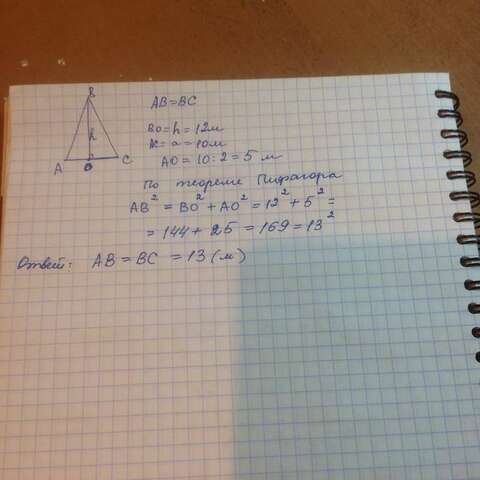 B
h
A O C
AB=BC
BO=h=12м
AC=a=10м
AO=10:2=5 м
По теореме Пифагора
AB²=BO²+AO²=12²+5²=
=144+25=169=13²
Ответ: AB=BC=13(м)